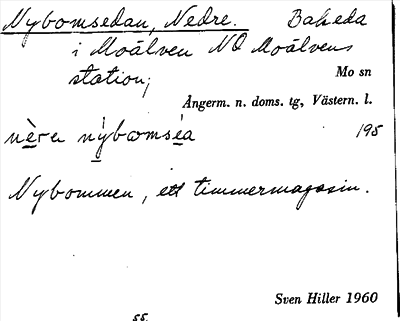 Nybomsedan, Nedre. Bakeda
i Moälven NO Moälvens
station;
Mo sn
Ångerm. n. doms. tg, Västern. l.
nèra nỳbomséa 195
Nybommen, ett timmermagasin.
Sven Hiller 1960
55.